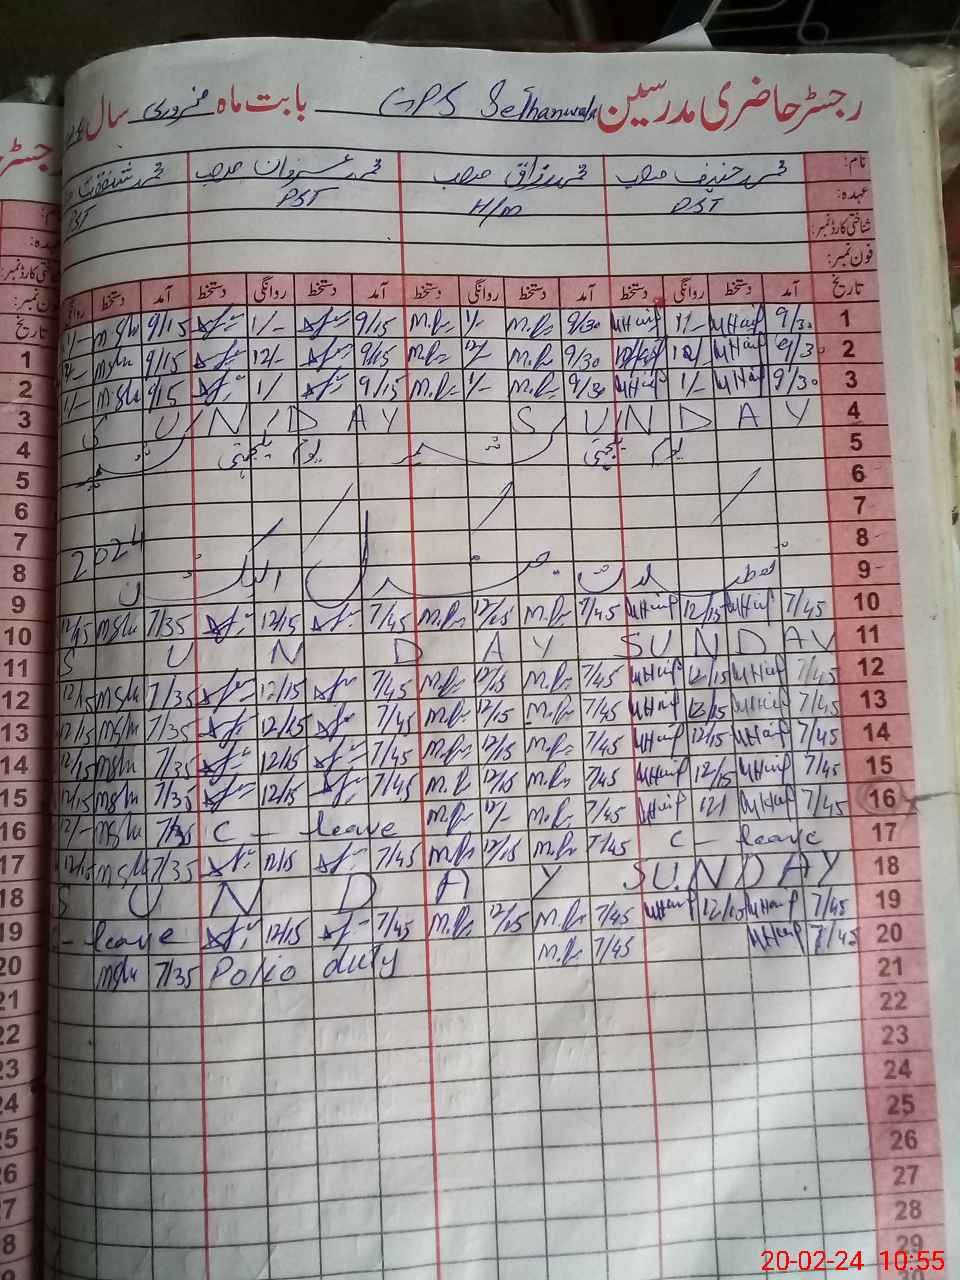 رجسٹر حاضری مدرسین GPS Sethanwala بابت ماہ فروری سال
نام: محمد حنیف صاحب محمد رزاق صاحب محمد عرفان صاحب محمد شفقت
عہدہ: PST H/m PST PST
شناختی کارڈ نمبر:
فون نمبر:
تاریخ آمد دستخط روانگی دستخط آمد دستخط روانگی دستخط آمد دستخط روانگی دستخط آمد دستخط روانگی
1 9/30 MHanif 1/- MHanif 9/30 M.R 1/- M.R 9/15 1/- 9/15 mshu 1/-
2 9/30 MHanif 12/- MHanif 9/30 M.R 12/- M.R 9/15 12/- 9/15 mshu 12/-
3 9/30 MHanif 1/- MHanif 9/30 M.R 1/- M.R 9/15 1/ 9/15 mshu 1/-
4 SUNDAY SUNDAY
5 یوم یکجہتی کشمیر یوم یکجہتی کشمیر
6
7
8
9 تعطیلات جنرل الیکشن 2024
10 7/45 MHanif 12/15 MHanif 7/45 M.R 12/15 M.R 7/45 12/15 7/35 mshu 12/15
11 SUNDAY SUNDAY
12 7/45 MHanif 12/15 MHanif 7/45 M.R 12/15 M.R 7/45 12/15 7/35 mshu 12/15
13 7/45 MHanif 12/15 MHanif 7/45 M.R 12/15 M.R 7/45 12/15 7/35 mshu 12/15
14 7/45 MHanif 12/15 MHanif 7/45 M.R 12/15 M.R 7/45 12/15 7/35 mshu 12/15
15 7/45 MHanif 12/15 MHanif 7/45 M.R 12/15 M.R 7/45 12/15 7/35 mshu 12/15
16 7/45 MHanif 12/ MHanif 7/45 M.R 12/- M.R C - leave 7/35 mshu 12/-
17 C - leave 7/45 M.R 12/15 M.R 7/45 12/15 7/35 mshu 12/15
18 SUNDAY SUNDAY
19 7/45 MHanif 12/15 MHanif 7/45 M.R 12/15 M.R 7/45 12/15 - leave
20 7/45 MHanif 7/45 M.R Polio duty 7/35 mshu
21
22
23
24
25
26
27
28
29
20-02-24 10:55